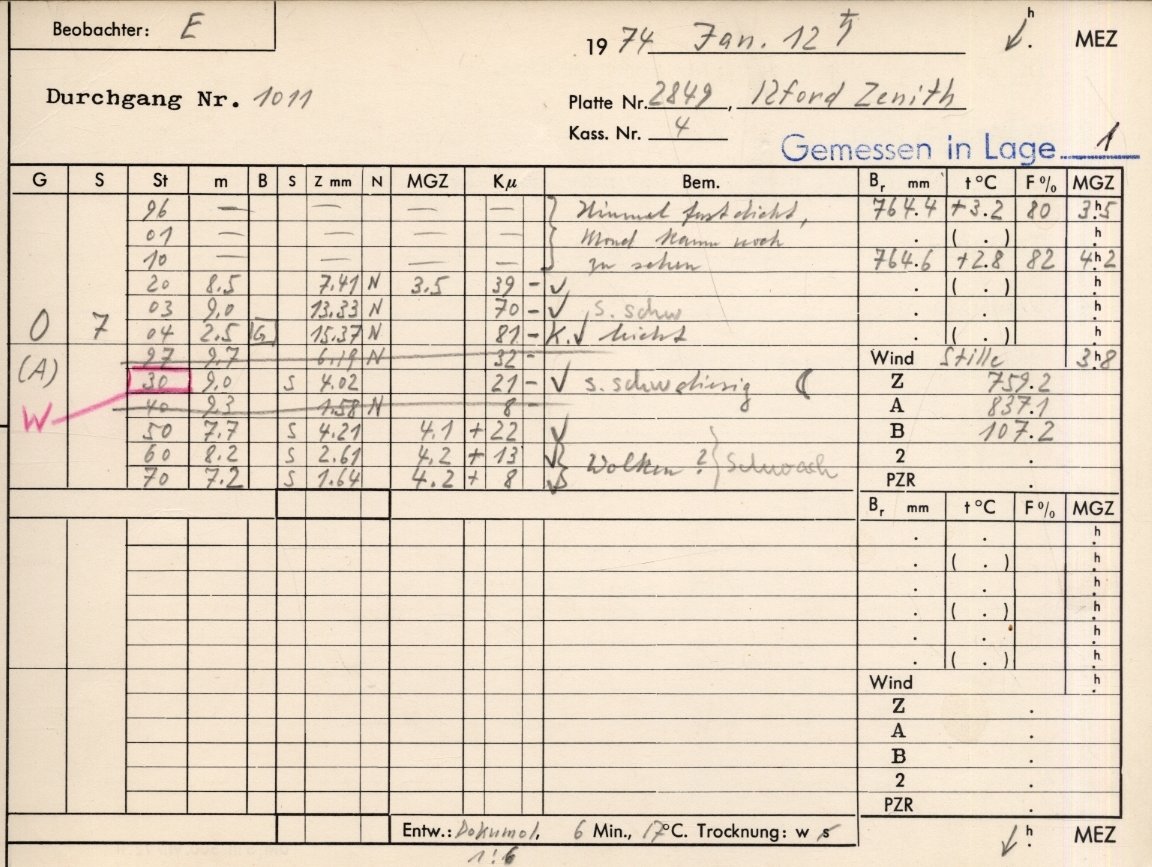 Beobachter: E
1974 Jan. 12 ♄ h . MEZ
Durchgang Nr. 1011
Platte Nr. 2849, Ilford Zenith
Kass. Nr. 4
Gemessen in Lage 1
G S St m B S Z mm N MGZ Kµ Bem. Br mm t °C F % MGZ
96 — — — — Himmel fast dicht, 764.4 +3.2 80 3h.5
01 — — — — Mond kaum noch . ( . ) h.
10 — — — — zu sehen 764.6 +2.8 82 4h.2
20 8.5 7.41 N 3.5 39 - ✓ . ( . ) h.
03 9.0 13.33 N 70 - ✓ s. schw . . h.
0 7 04 2.5 G 15.37 N 81 - K. ✓ . ( . ) h.
97 9.7 6.19 N 32 - Wind Stille 3h.8
(A) 30 9.0 S 4.02 21 - ✓ s. schw diesig ( Z 759.2
W 40 9.3 1.58 N 8 - A 837.1
50 7.7 S 4.21 4.1 + 22 ✓ B 107.2
60 8.2 S 2.61 4.2 + 13 ✓ Wolken ? Schwach 2 .
70 7.2 S 1.64 4.2 + 8 ✓ PZR .
Br mm t °C F % MGZ
. . h.
. ( . ) h.
. . h.
. ( . ) h.
. . h.
. ( . ) h.
Wind h.
Z .
A .
B .
2 .
PZR .
Entw.: Dokumol. 6 Min., 17°C. Trocknung: w s
1:6
h . MEZ